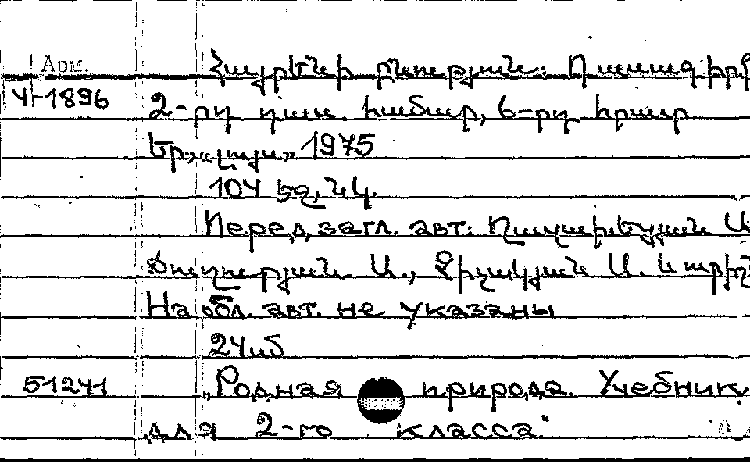 Арм.
Հայրենի բնություն: Դասագիրք
VI-1896 2-րդ դաս. համար, 6-րդ հրատ
Եր., «Լույս» 1975
104 էջ, նկ.
Перед загл. авт.: Ա
Ա., Ջիվանյան Ա. և ուրիշ
На обл. авт. не указаны
51241 „Родная природа. Учебник
для 2-го класса"